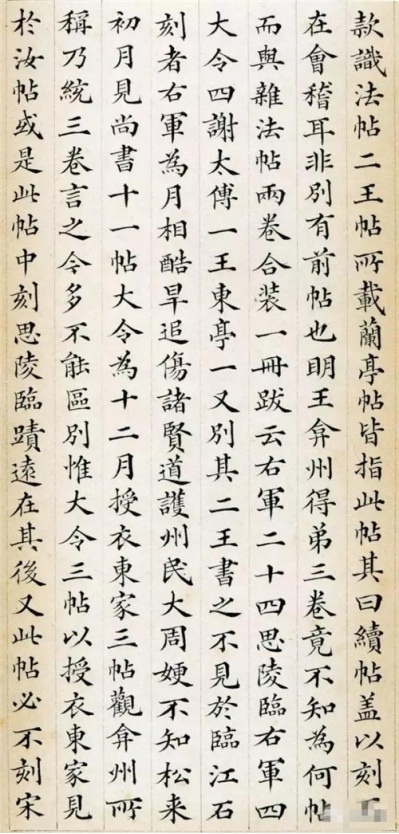 款識法帖二王帖所載蘭亭帖皆指此帖其曰續帖盖以刻
在會稽耳非別有前帖也明王弇州得弟三卷竟不知為何帖
而與雜法帖兩卷合装一冊跋云右軍二十四思陵臨右軍四
大令四謝太傅一王東亭一又別其二王書之不見於臨江石
刻者右軍為月相酷旱追傷諸賢道護州民大周㛐不知松来
初月見尚書十一帖大令為十二月授衣東家三帖觀弇州所
稱乃統三卷言之令多不能區別惟大令三帖以授衣東家見
於汝帖或是此帖中刻思陵臨蹟遠在其後又此帖必不刻宋